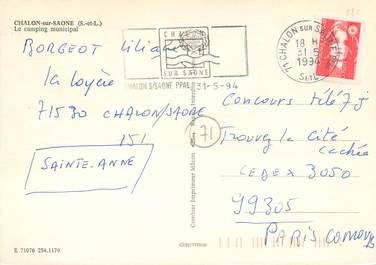 CHALON-sur-SAONE (S.-et-L.)
Le camping municipal
BORGEOT Liliane
la loyère
71530 CHALON/SAONE
151
SAINTE-ANNE
E 71076 254.1179
CHALON
SUR SAONE
CHALON S/SAONE PPAL 31-5-94
71 CHALON SUR SAONE
18 H
31-5
1994
S et L
71
Combier Imprimeur Mâcon
Concours télé 7 j
Trouvez la cité
cachée
CEDEX 3050
99305
PARIS CONCOURS